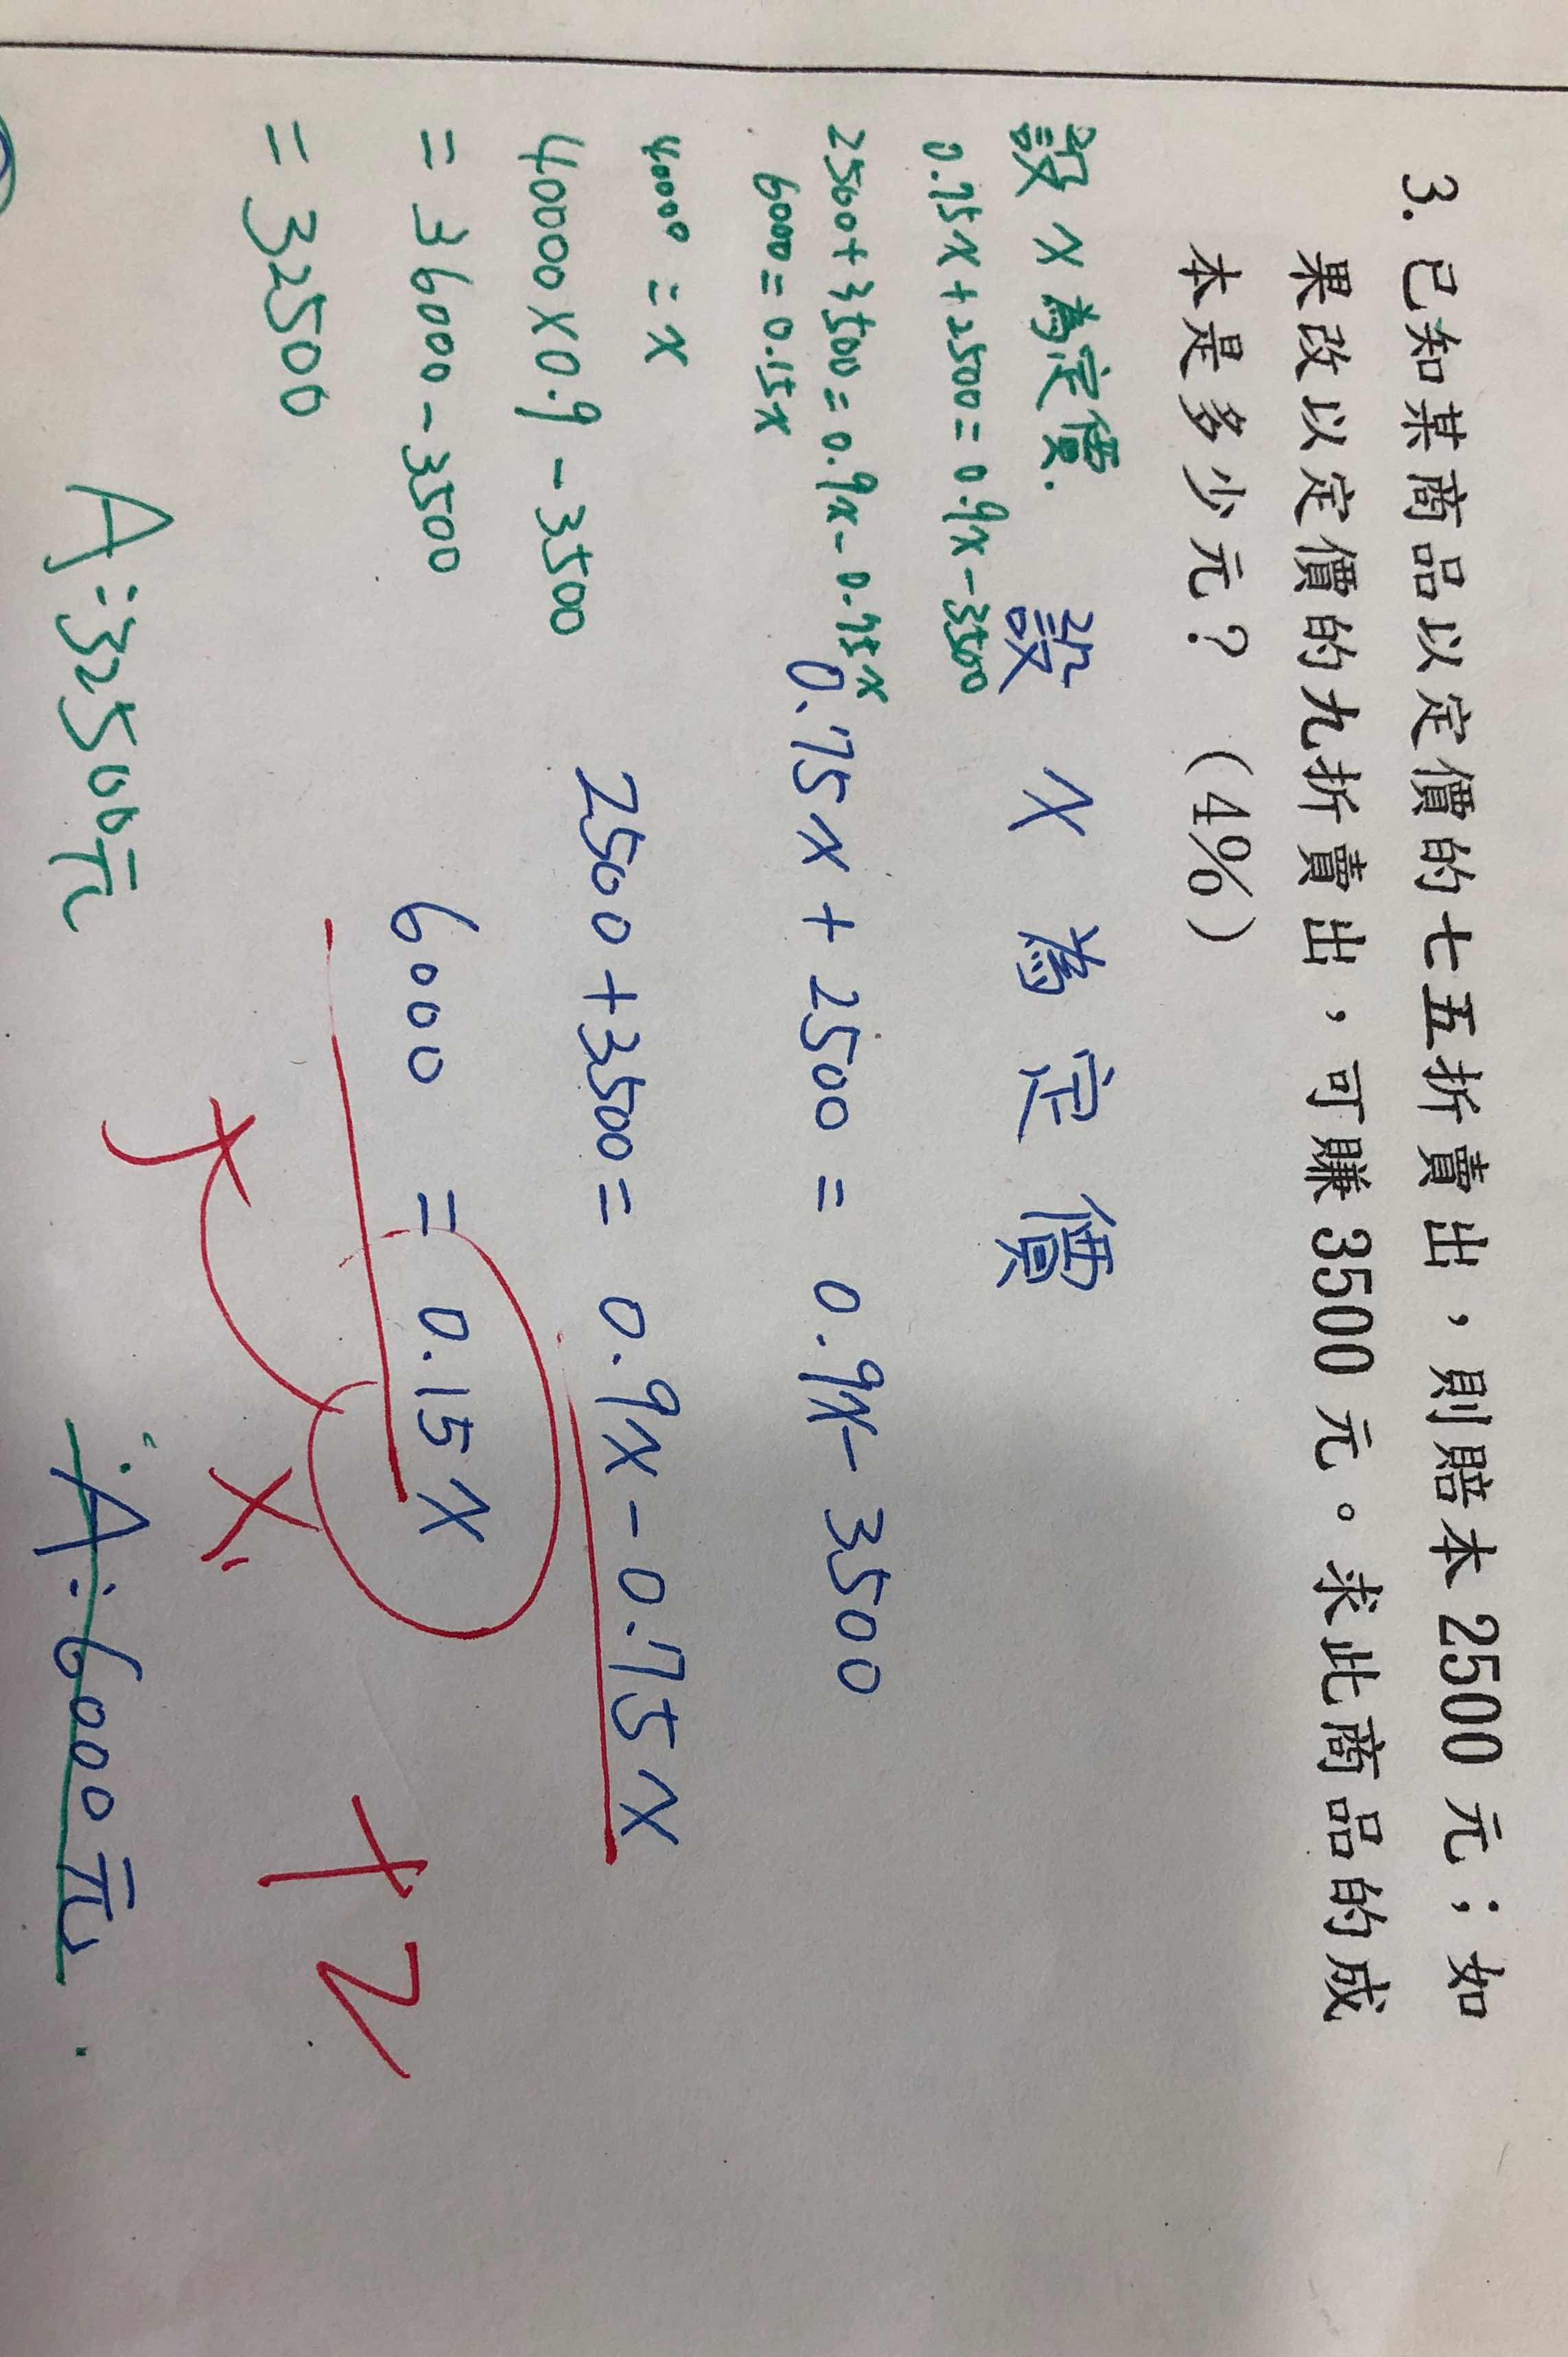 3. 已知某商品以定價的七五折賣出，則賠本 2500 元；如
果改以定價的九折賣出，可賺 3500 元。求此商品的成
本是多少元？（4%）
設 x 為定價.
0.75x + 2500 = 0.9x - 3500
2500 + 3500 = 0.9x - 0.75x
6000 = 0.15x
40000 = x
40000 × 0.9 - 3500
= 36000 - 3500
= 32500
A：32500元
設 x 為定價
0.75x + 2500 = 0.9x - 3500
2500 + 3500 = 0.9x - 0.75x
6000 = 0.15x
x
+2
A：6000元